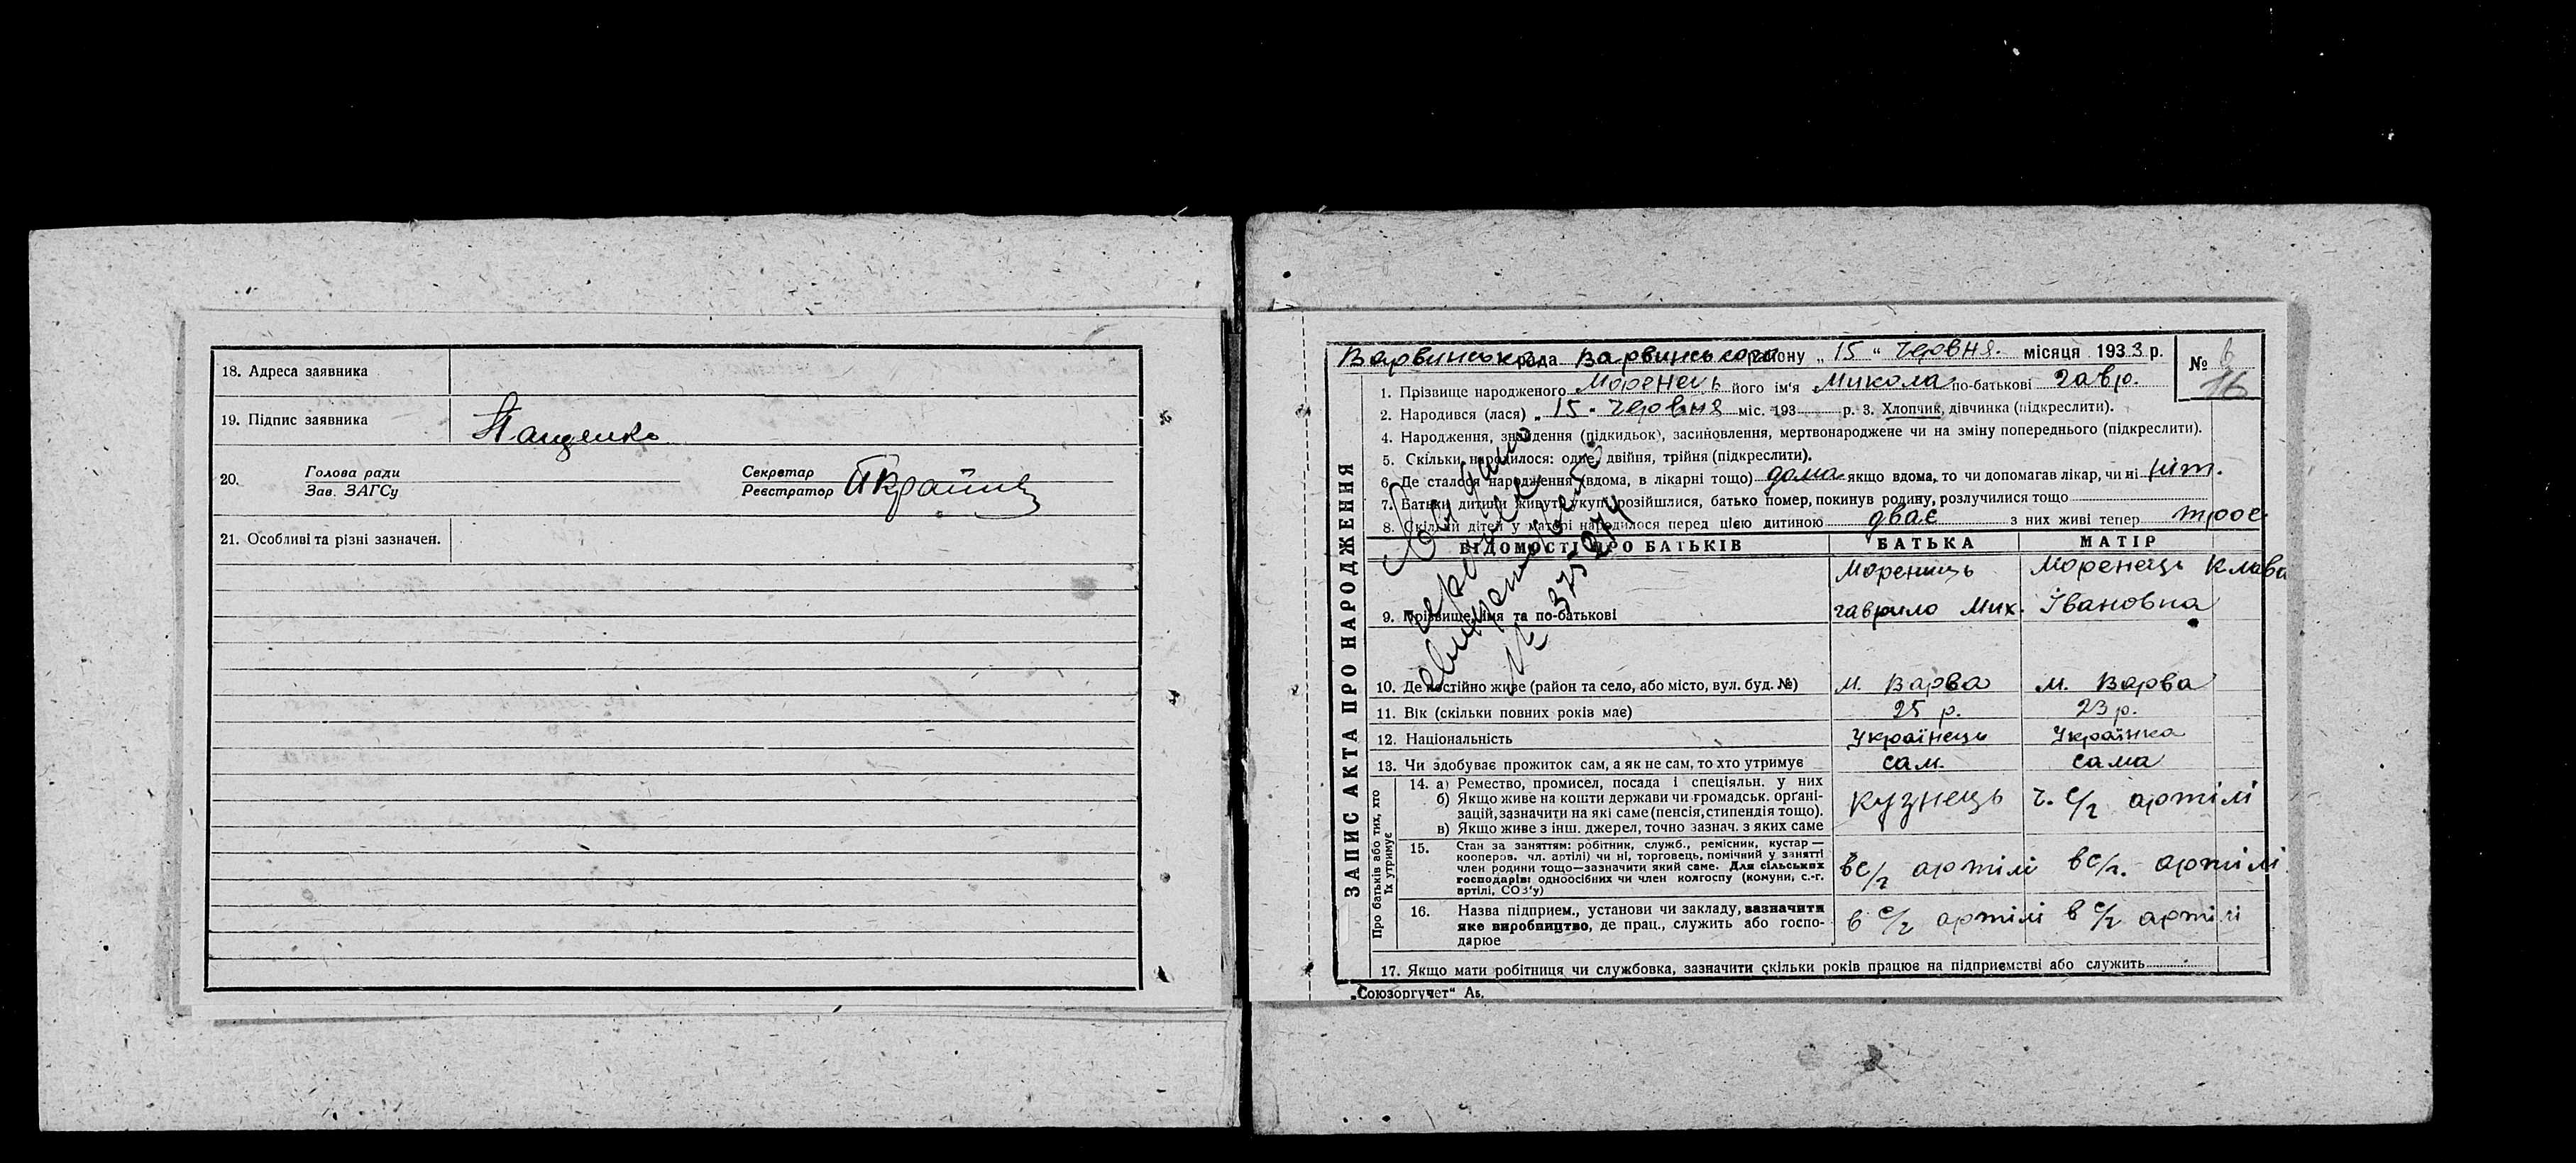 18. Адреса заявника
19. Підпис заявника Пащенко
20. Голова ради
Зав. ЗАГСу
Секретар
Реєстратор
21. Особливі та різні зазначен.
ЗАПИС АКТА ПРО НАРОДЖЕННЯ
Варвинська рада Варвинського району „ 15 “ червня. місяця 1933 р. № 16
1. Прізвище народженого Моренець його ім'я Микола по-батькові Гавр.
2. Народився (лася) „ 15 - червня міс. 193 р. 3. Хлопчик, дівчинка (підкреслити).
4. Народження, знайдення (підкидьок), засиновлення, мертвонароджене чи на зміну попереднього (підкреслити).
5. Скільки народилося: одне, двійня, трійня (підкреслити).
6. Де сталося народження (вдома, в лікарні тощо) дома якщо вдома, то чи допомагав лікар, чи ні ніт.
7. Батьки дитини живуть укупі, розійшлися, батько помер, покинув родину, розлучилися тощо
8. Скільки дітей у матері народилося перед цією дитиною дває з них живі тепер троє.
ВІДОМОСТІ ПРО БАТЬКІВ БАТЬКА МАТІР
Морениць Моренець Клава
9. Прізвище, імя та по-батькові гаврило Мих. Івановна
10. Де постійно живе (район та село, або місто, вул. буд. №) м. Варва м. Варва
11. Вік (скільки повних років має) 25 р. 23 р.
12. Національність Українець Українка
13. Чи здобуває прожиток сам, а як не сам, то хто утримує сам. сама
Про батьків або тих, хто
їх утримує
14. а) Ремество, промисел, посада і спеціяльн. у них
б) Якщо живе на кошти держави чи громадськ. орґані-
зацій, зазначити на які саме (пенсія, стипендія тощо).
в) Якщо живе з інш. джерел, точно зазнач. з яких саме
кузнець ч. с/г артілі
15. Стан за заняттям: робітник, служб., ремісник, кустар —
кооперов. чл. артілі) чи ні, торговець, помічний у занятті
член родини тощо—зазначити який саме. Для сільських
господарів: одноосібних чи член колгоспу (комуни, с.-г.
артілі, СОЗ'у)
в с/г артілі в с/г. артілі
16. Назва підприєм., установи чи закладу, зазначити
яке виробництво, де прац., служить або госпо-
дарює
в с/г артілі в с/г артілі
17. Якщо мати робітниця чи службовка, зазначити скільки років працює на підприємстві або служить
„Союзоргучет“ Аз.